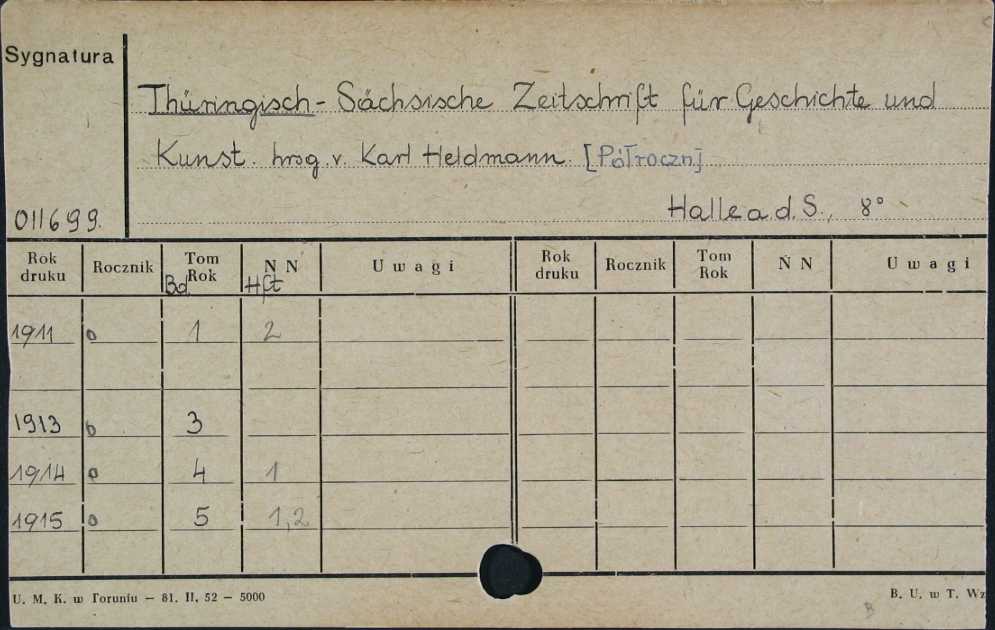 Sygnatura
Thüringisch-Sächsische Zeitschrift für Geschichte und
Kunst. hrsg. v. Karl Heldmann [Półroczn]
Halle a. d. S., 8°
011699.
Rok druku Rocznik Tom Rok N N Uwagi Rok druku Rocznik Tom Rok N N Uwagi
Bd. Hft
1911 o 1 2
1913 o 3
1914 o 4 1
1915 o 5 1,2
U. M. K. w Toruniu — 81. II. 52 — 5000 B. U. w T. Wz
B